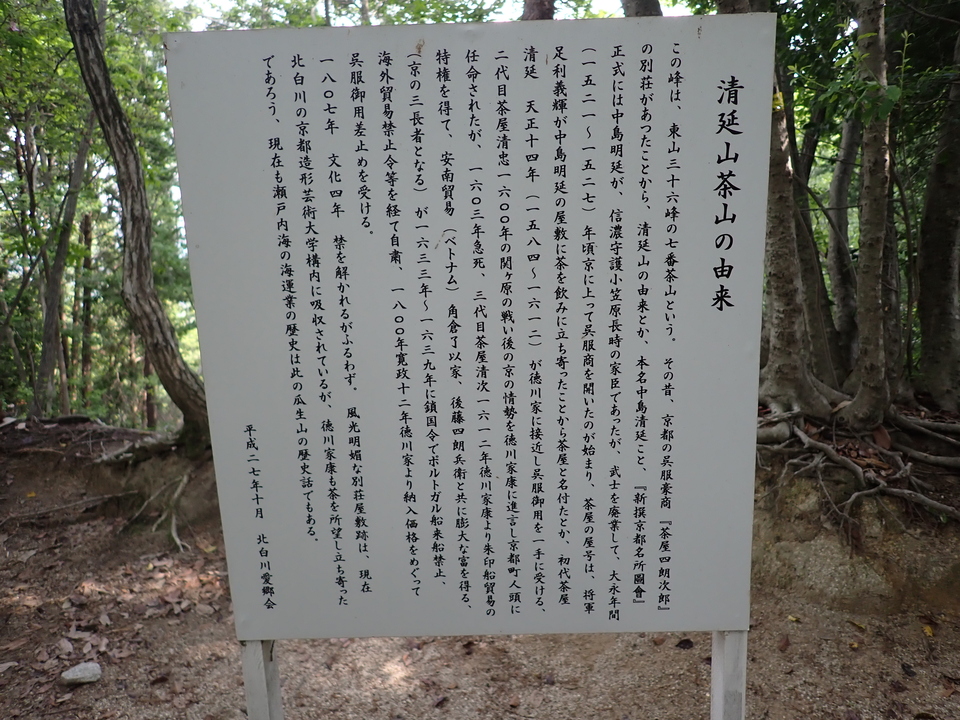 清延山茶山の由来
この峰は、東山三十六峰の七番茶山という。その昔、京都の呉服豪商『茶屋四朗次郎』
の別荘があつたことから、清延山の由来とか、本名中島清延こと、『新撰京都名所圖會』
正式には中島明延が、信濃守護小笠原長時の家臣であったが、武士を廃業して、大永年間
(一五二一～一五二七)年頃京に上って呉服商を開いたのが始まり、茶屋の屋号は、将軍
足利義輝が中島明延の屋敷に茶を飲みに立ち寄ったことから茶屋と名付たとか、初代茶屋
清延 天正十四年(一五八四～一六一二)が徳川家に接近し呉服御用を一手に受ける、
二代目茶屋清忠一六〇〇年の関ヶ原の戦い後の京の情勢を徳川家康に進言し京都町人頭に
任命されたが、一六〇三年急死、三代目茶屋清次一六一二年徳川家康より朱印船貿易の
特権を得て、安南貿易(ベトナム)角倉了以家、後藤四朗兵衛と共に膨大な富を得る、
(京の三長者となる)が一六三三年～一六三九年に鎖国令でポルトガル船来船禁止、
海外貿易禁止令等を経て自粛、一八〇〇年寛政十二年徳川家より納入価格をめぐって
呉服御用差止めを受ける。
一八〇七年 文化四年 禁を解かれるがふるわず。風光明媚な別荘屋敷跡は、現在
北白川の京都造形芸術大学構内に吸収されているが、徳川家康も茶を所望し立ち寄った
であろう、現在も瀬戸内海の海運業の歴史は此の瓜生山の歴史話でもある。
平成二七年十月 北白川愛郷会